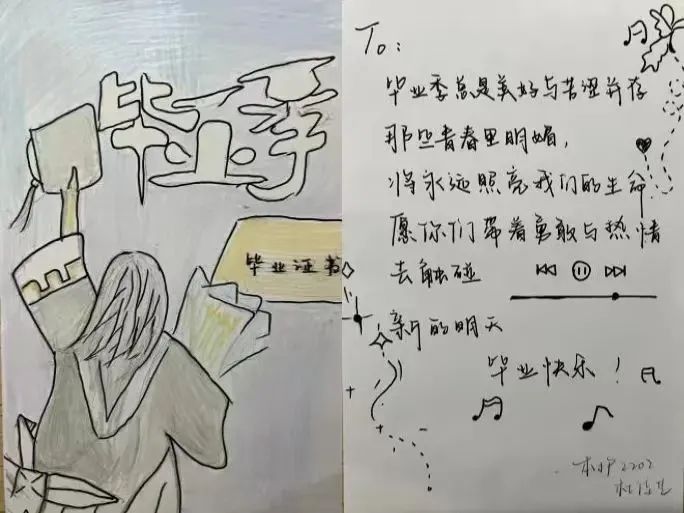 毕业季
毕业证书
To:
毕业季总是美好与苦涩并存
那些青春里明媚,
将永远照亮我们的生命
愿你们带着勇敢与热情
去触碰
新的明天
毕业快乐!
本护2202